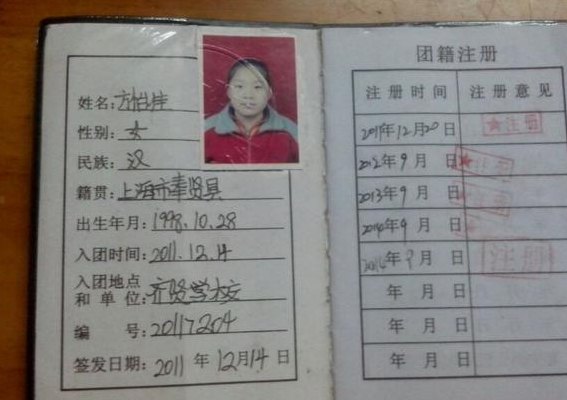 姓名:方怡佳
性别:女
民族:汉
籍贯:上海市奉贤县
出生年月:1998.10.28
入团时间:2011.12.14
入团地点
和单位:齐贤学校
编 号:20117204
签发日期:2011年12月14日
团籍注册
注册时间 注册意见
2011年12月20日 注册
2012年9月 日 注册
2013年9月 日
2014年9月 日
年9月 日 注册
年 月 日
年 月 日
年 月 日